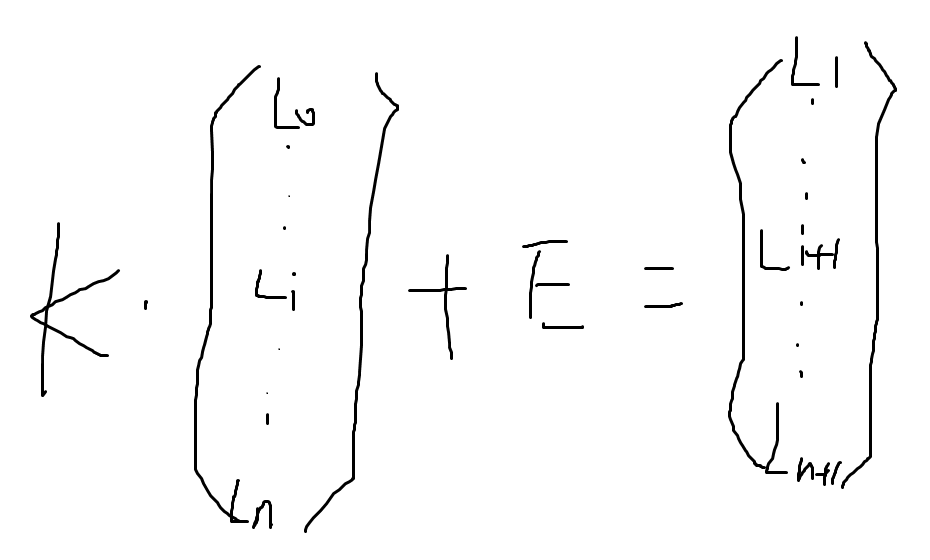 K · (L0 ... Li ... Ln) + E = (L1 ... Li+1 ... Ln+1)